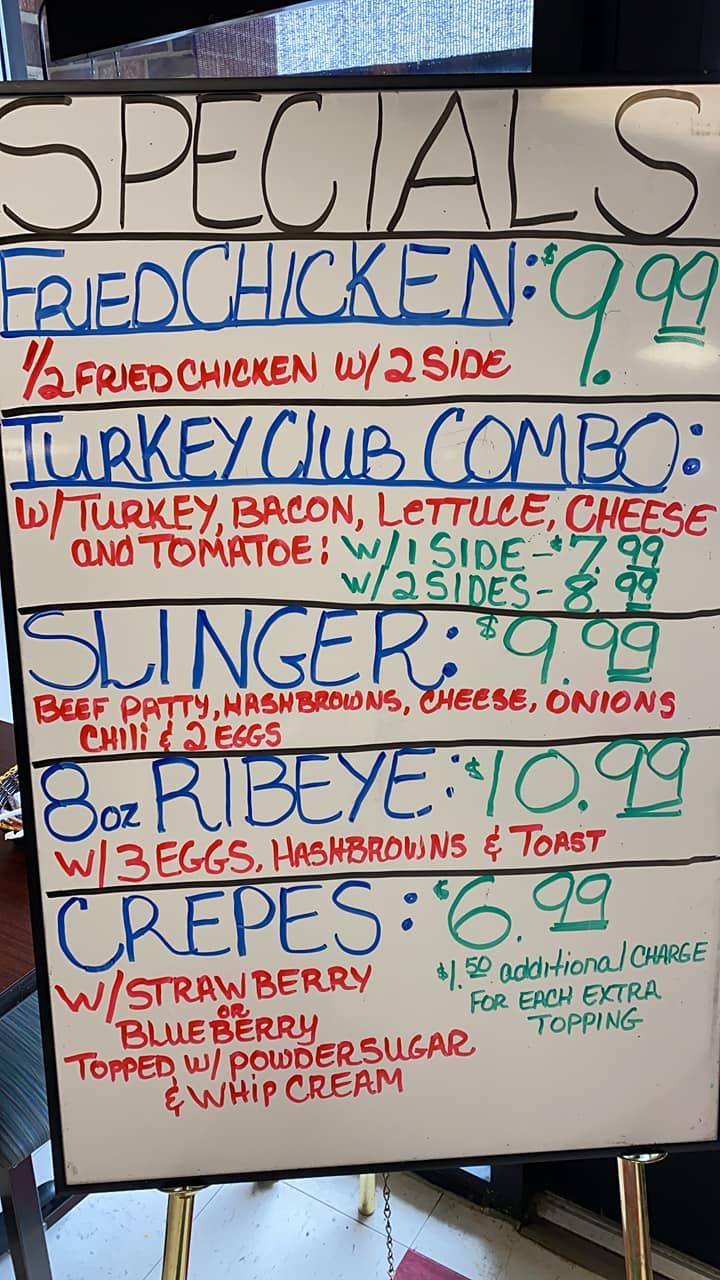 SPECIALS
FRIED CHICKEN: $9.99
1/2 FRIED CHICKEN W/ 2 SIDE
TURKEY CLUB COMBO:
W/ TURKEY, BACON, LETTUCE, CHEESE
AND TOMATOE: W/ 1 SIDE - $7.99
W/ 2 SIDES - 8.99
SLINGER: $9.99
BEEF PATTY, HASHBROWNS, CHEESE, ONIONS
CHILI & 2 EGGS
8oz RIBEYE: $10.99
W/ 3 EGGS, HASHBROWNS & TOAST
CREPES: $6.99
W/ STRAWBERRY
OR
BLUEBERRY
TOPPED W/ POWDER SUGAR
& WHIP CREAM
$1.50 additional CHARGE
FOR EACH EXTRA
TOPPING